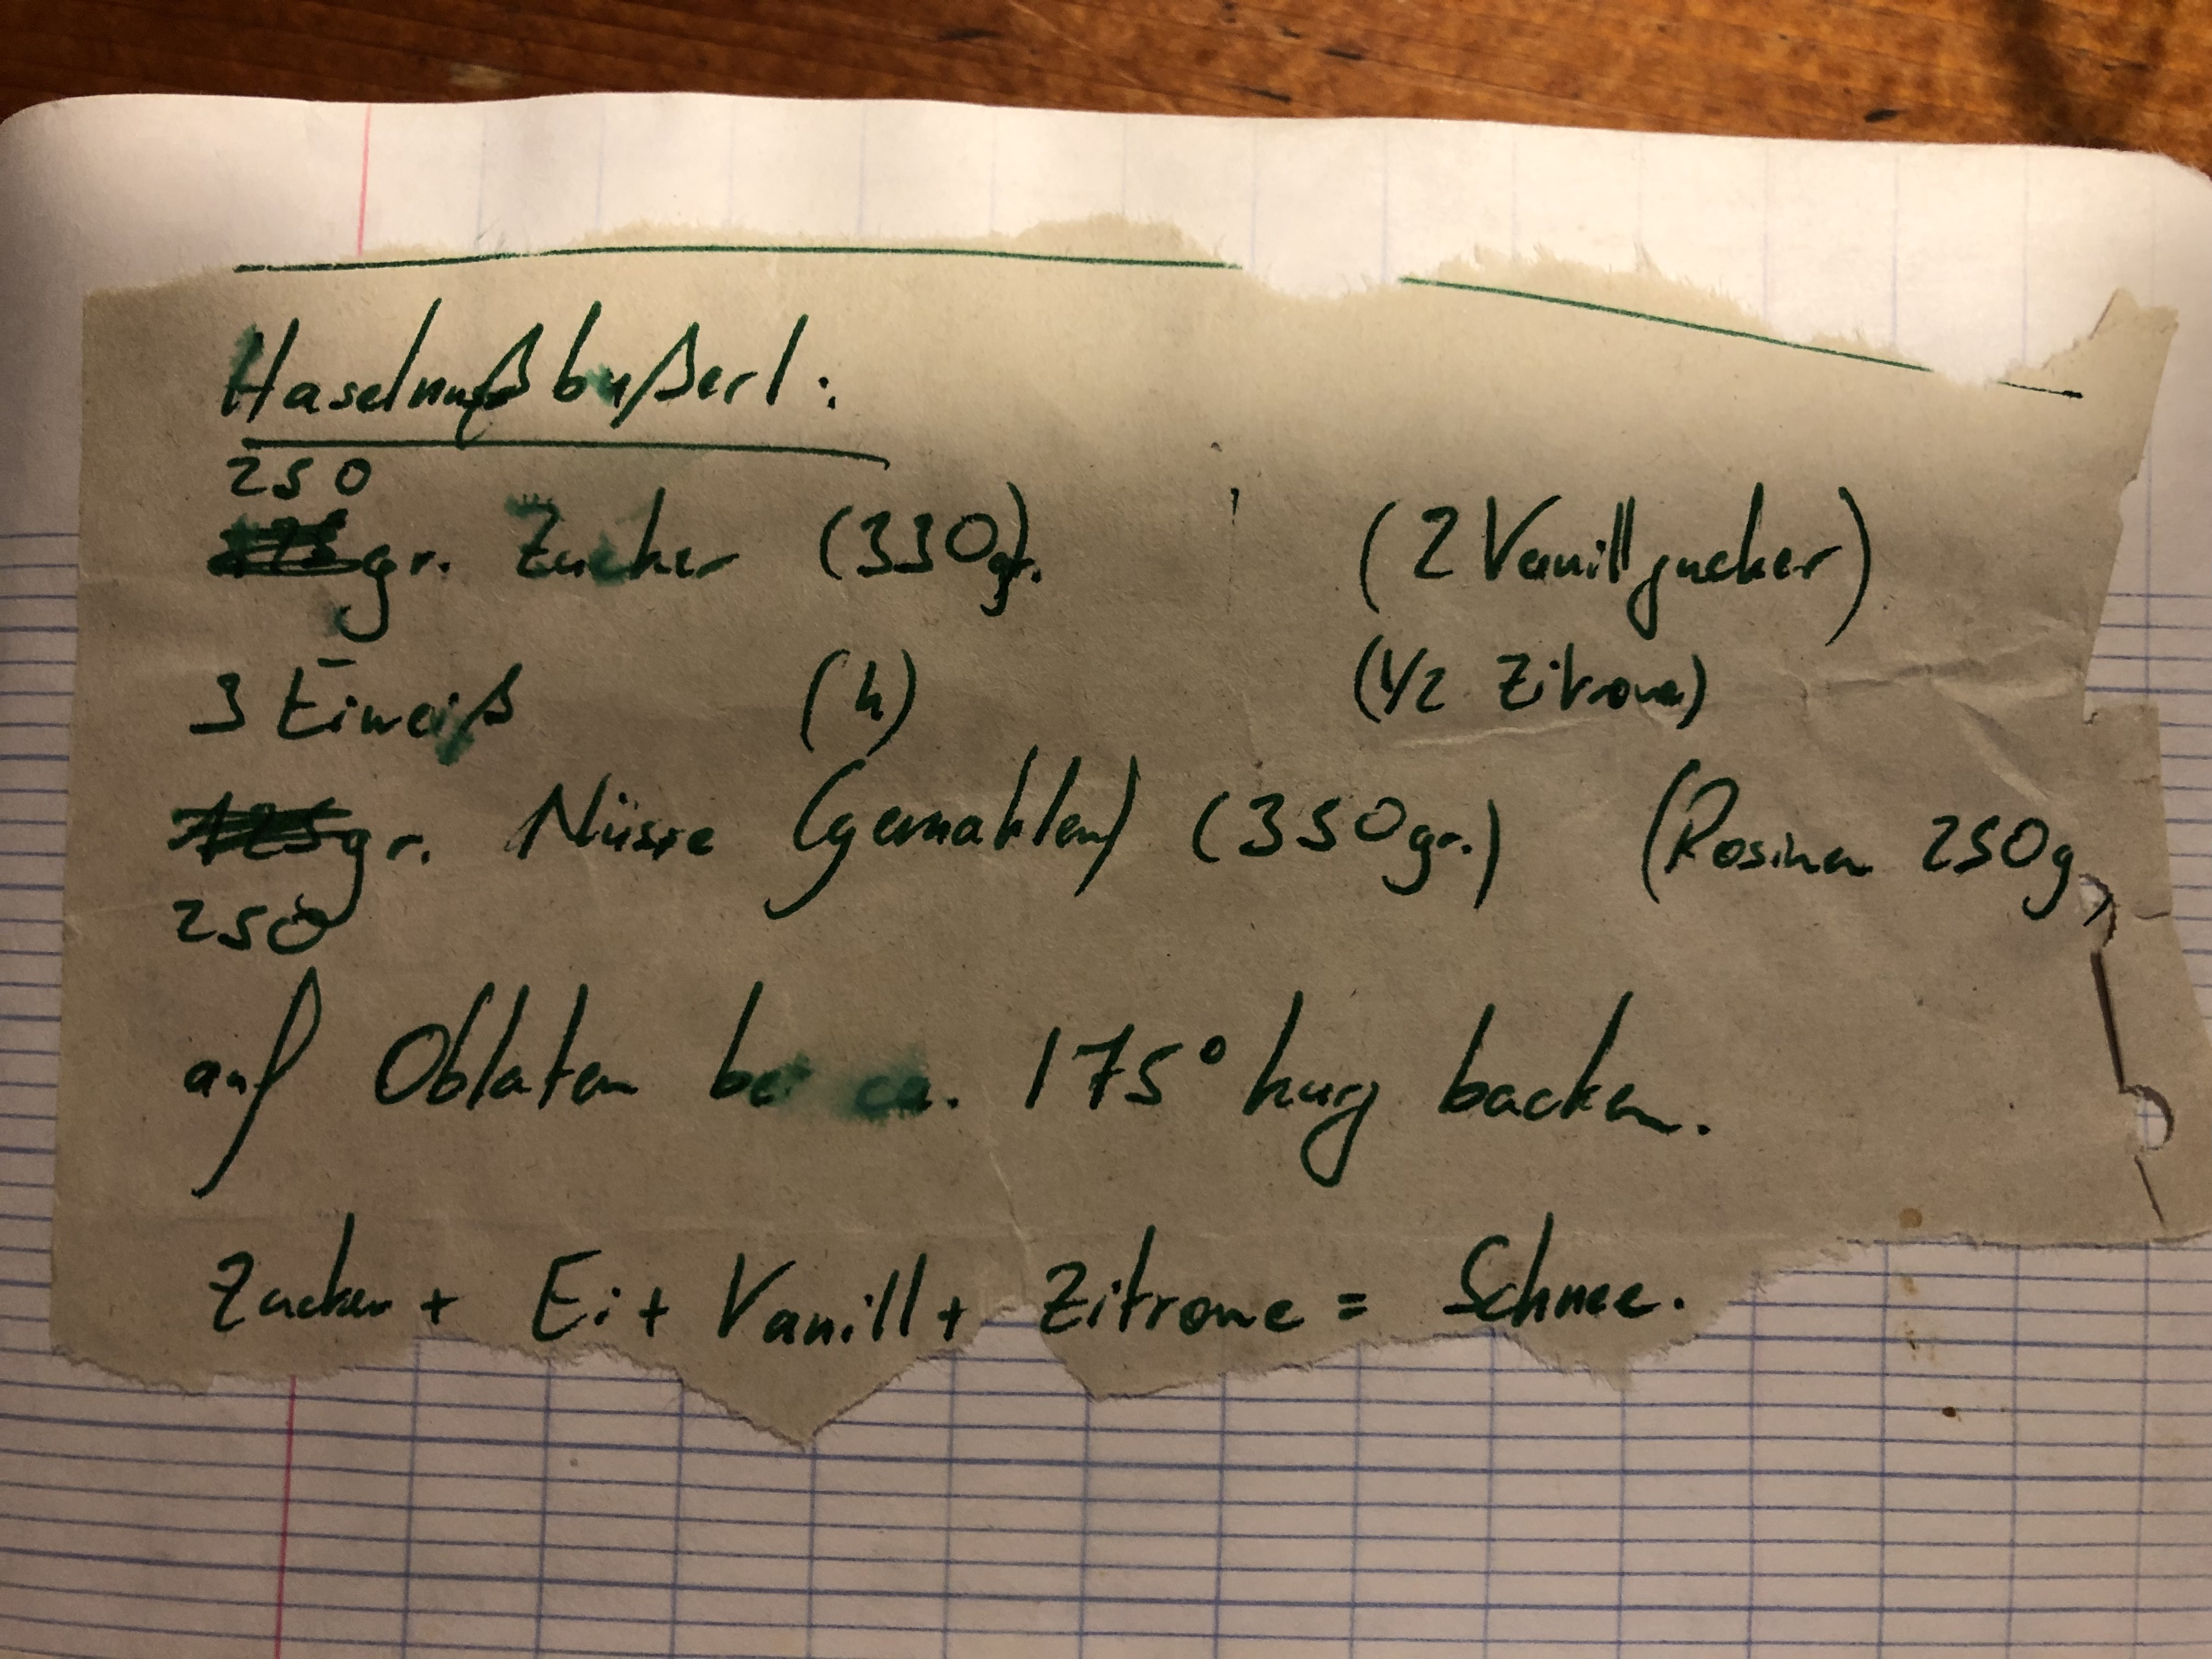 Haselnußbußerl:
250
gr. Zucker (330gr. (2 Vanillzucker)
3 Eiweiß (4) (1/2 Zitrone)
125gr. Nüsse (gemahlen) (350gr.) (Rosinen 250g)
250
auf Oblaten bei ca. 175° kurz backen.
Zucker + Ei + Vanill + Zitrone = Schnee.